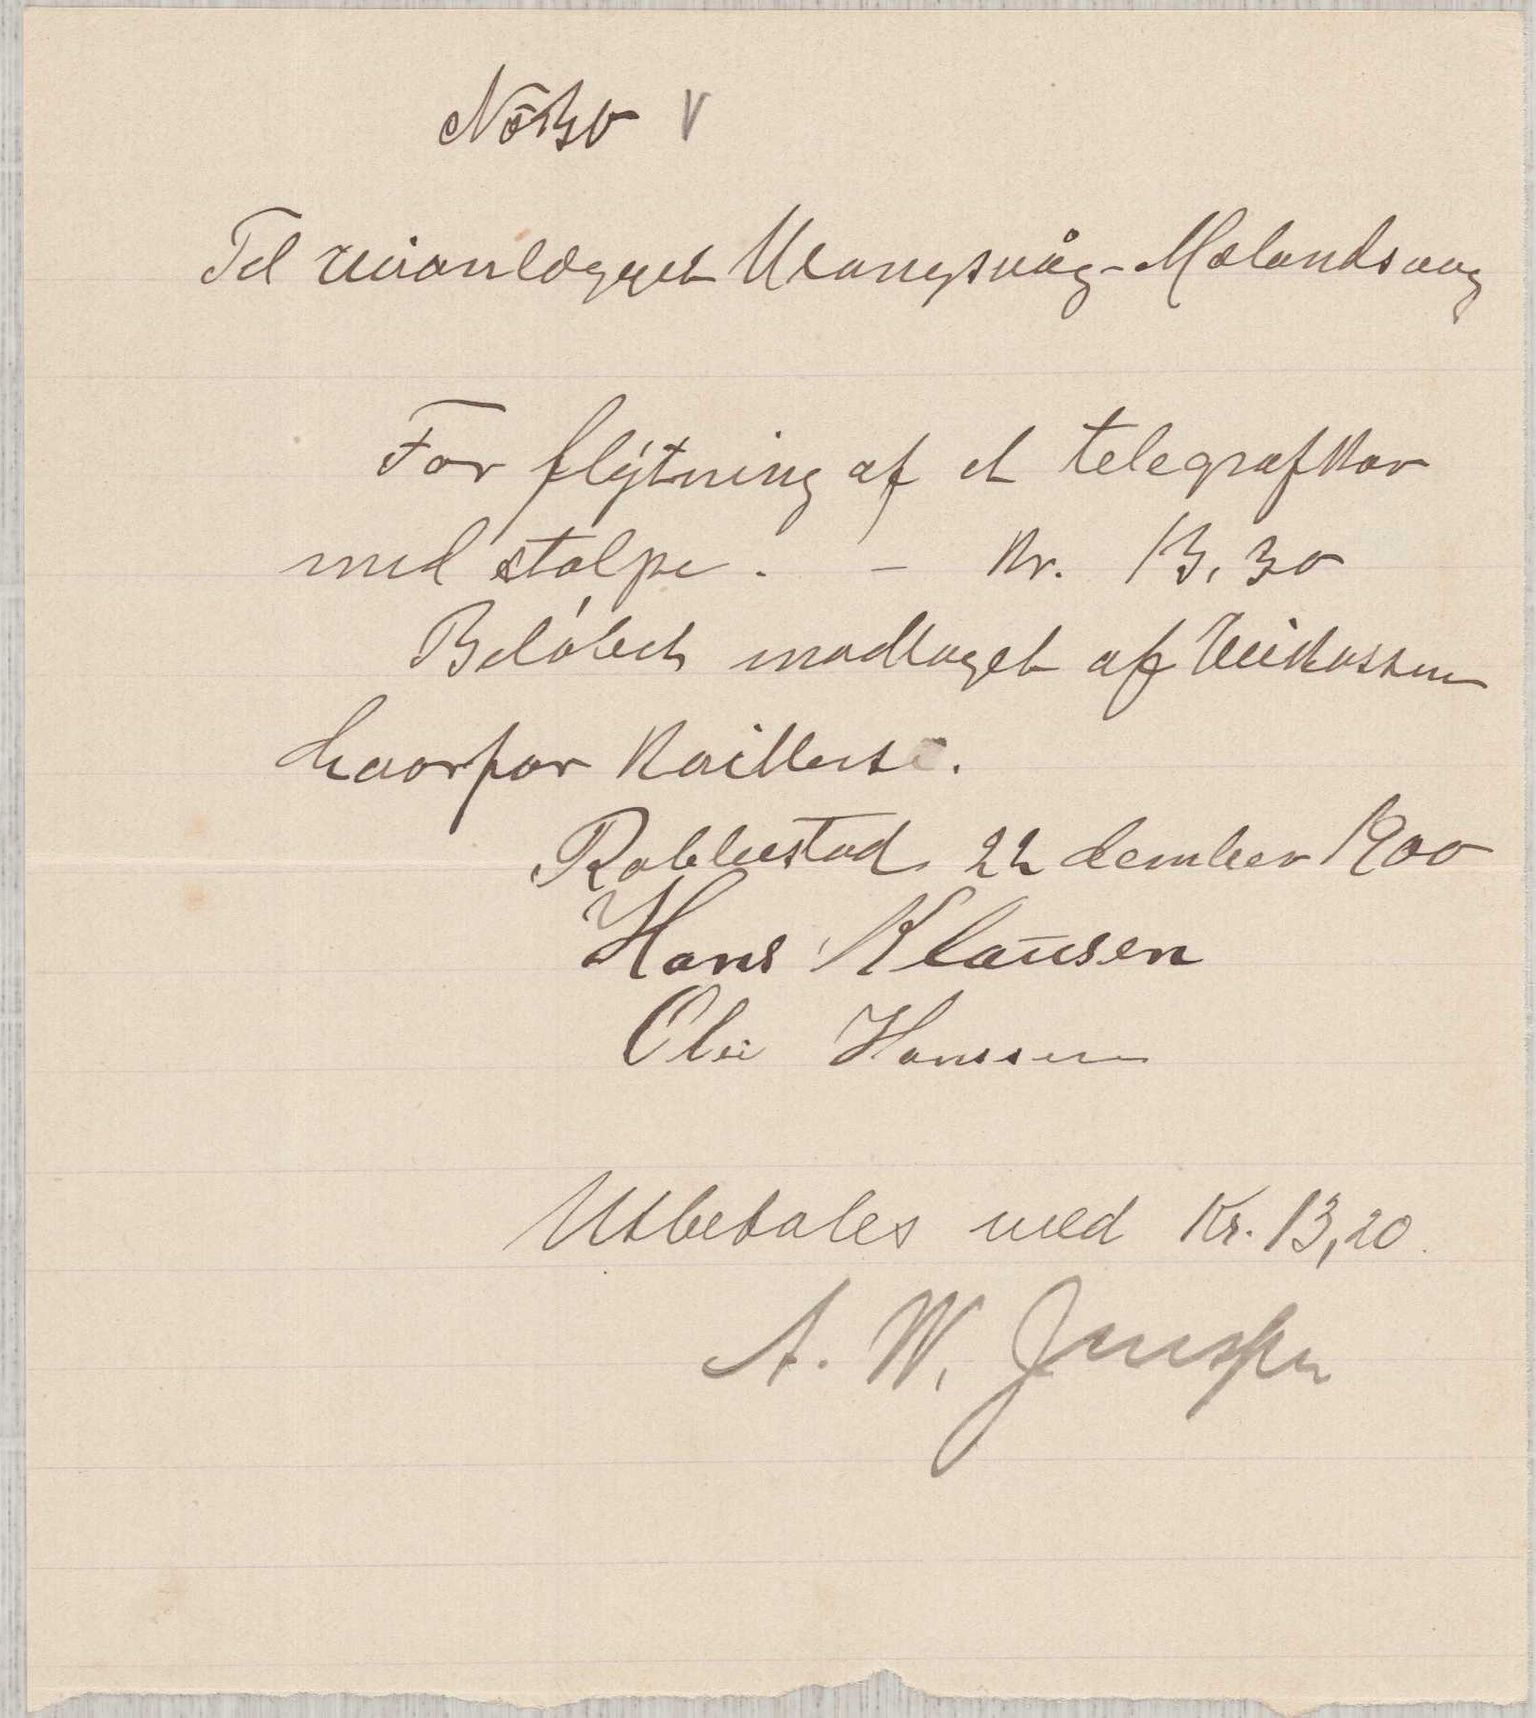 Til veianlægget Urangsvåg-Mælandsvåg
For flytning af et telegrafkar
med stolpe. - Kr. 13,30
Beløbet modtaget af Veikassen
hvorfor kvitteres.
Rabbestad 22 december 1900
Hans Klausen
Ole Hanssen
Utbetales med Kr. 13,20.
A. W.